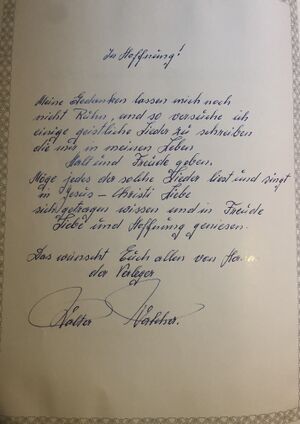 In Hoffnung!
Meine Gedanken lassen mich noch
nicht Ruhn, und so versuche ich
einige geistliche Lieder zu schreiben
die uns in meinen Leben
Halt und Freude geben.
Möge jedes der solche Lieder liest und singt
in Jesus-Christi Liebe
sich getragen wissen und in Freude
Liebe und Hoffnung geniesen.
Das wünscht Euch allen von
der Verleger
Walter